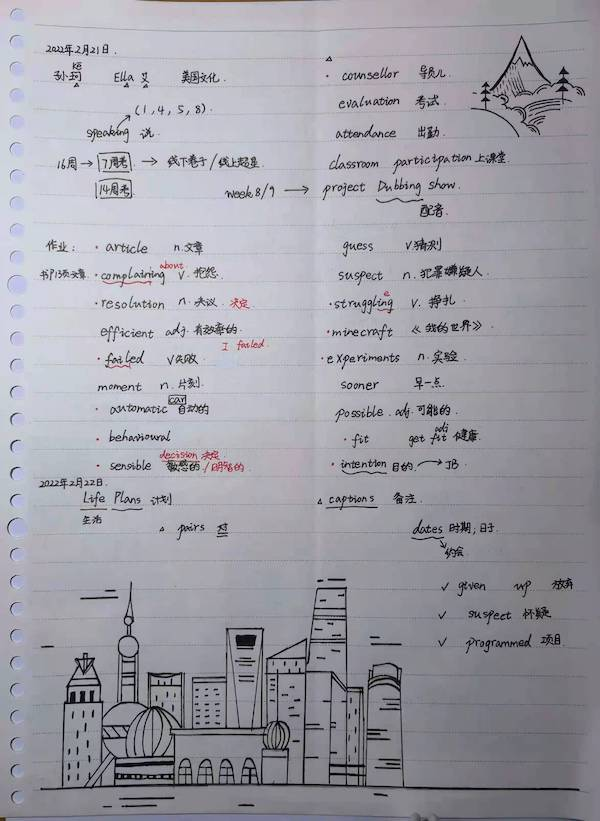 2022年2月21日.
Kē
孙珂 Ella 艾 美国文化.
(1,4,5,8).
speaking 说
16周 → 7周考 → 线下卷子/线上超星
14周考
week 8/9 → project Dubbing show.
配音
counsellor 导员儿
evaluation 考试
attendance 出勤
classroom participation 上课堂
作业: · article n.文章
书P13页文章. · complaining about v. 抱怨.
· resolution n. 决议. 决定.
efficient adj. 有效率的.
I failed.
· failed v.失败
moment n. 片刻.
car
· automatic 自动的
· behavioural
decision 决定
· sensible 敏感的/明智的
guess v.猜测
suspect n. 犯罪嫌疑人.
e
· struggling v. 挣扎
· minecraft 《我的世界》
· experiments n. 实验.
sooner 早一点.
possible. adj. 可能的.
adj
· fit get fit 健康.
· intention 目的. → JB
2022年2月22日.
Life Plans 计划
生活
△ pairs 对
△ captions 备注.
dates 时期, 日子.
约会
✓ given up 放弃
✓ suspect 怀疑
✓ programmed 项目